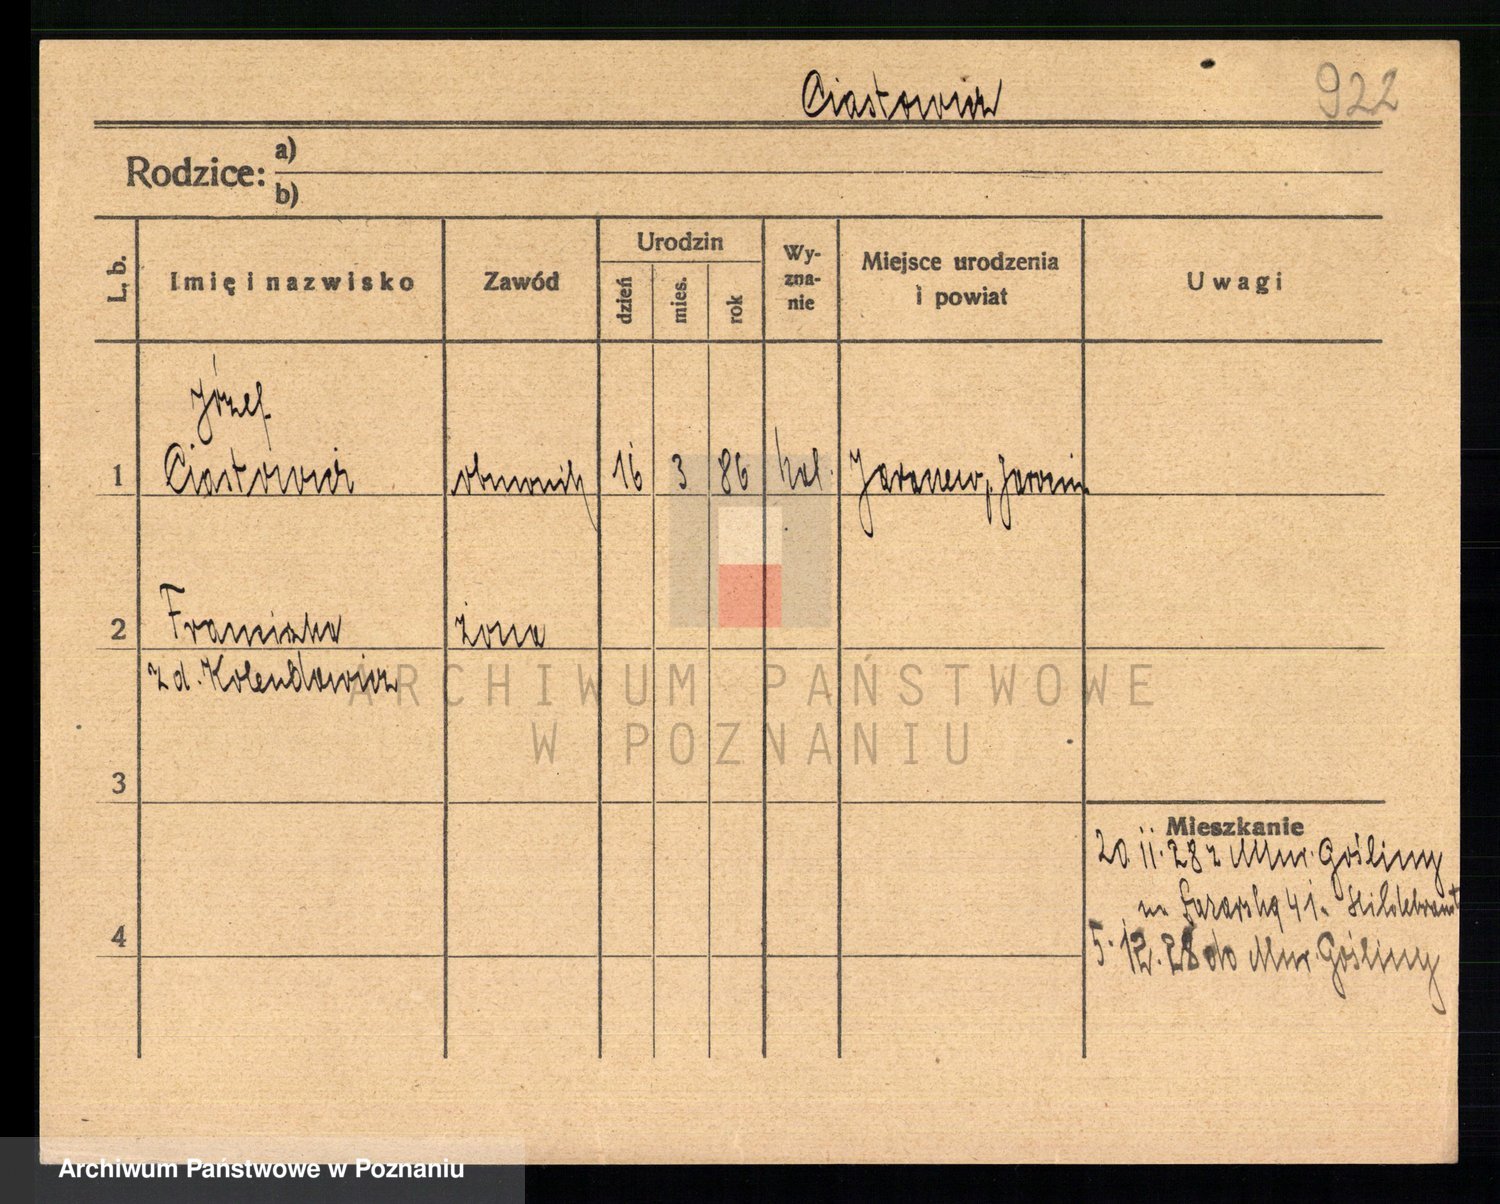 Ciastowicz
922
Rodzice: a)
b)
L. b.
Imię i nazwisko
Zawód
Urodzin
dzień
mies.
rok
Wy-
zna-
nie
Miejsce urodzenia
i powiat
Uwagi
Józef
1 Ciastowicz 16 3 86 kat.
2 Franciszka żona
z d. Kolendowicz
3
4
Mieszkanie
20 11. 28 z Mur. Gośliny
41 Hildebrandt
5. 12. 28 do Mur. Gośliny
ARCHIWUM PAŃSTWOWE
W POZNANIU
Archiwum Państwowe w Poznaniu